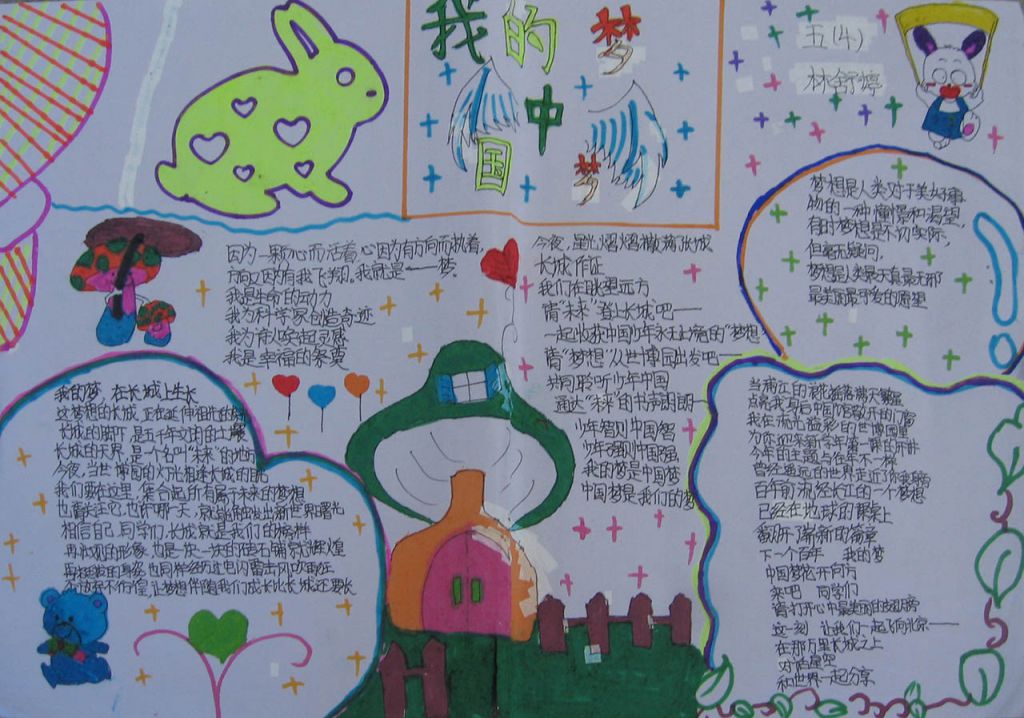 我的梦
中国梦
五(4)
林舒婷
梦想是人类对于美好事
物的一种憧憬和渴望,
有时梦想是不切实际,
但毫无疑问,
梦想是人类最天真最无邪
最美丽最可爱的愿望
因为一颗心而活着,心因为有方向而执着,
方向又因有我飞翔。我就是——梦,
我是生命的动力
我为科学家创造奇迹
我是幸福的
今夜,星光熠熠撒满长城
长城作证
我们在眺望远方
背“未来”登上长城吧——
一起收获中国少年永远的“梦想”
背“梦想”从世博园出发吧——
共同聆听少年中国
通达“未来”的书声朗朗—
少年智则中国智
少年强则中国强
我的梦是中国梦
中国梦是我们的梦
我的梦,在长城上生长
这梦想的长城,正在延伸祖先的
长城的脚下,是五千年文明的土壤
长城的天界,是一个叫“未来”的地方
今夜,当世博园的灯光相连长城的
我们要在这里,集合起所有属于未来的梦想
相信自己,同学们,长城就是我们的榜样
再壮观的形象,也是一次一次的砖石铺就辉煌
让梦想伴随我们成长比长城还要长
当浦江的
我在流光溢彩的世博园里
今年的主题与往年不一样
曾经遥远的世界走近了
百年前流经长江的一个梦想
已经在地球的
翻开了崭新的篇章
下一个百年 我的梦
中国梦花开何方
来吧 同学们
请打开心中最美丽的翅膀
这一刻 让我们一起飞向北京——
在那万里长城之上
对话星空
和世界一起分享